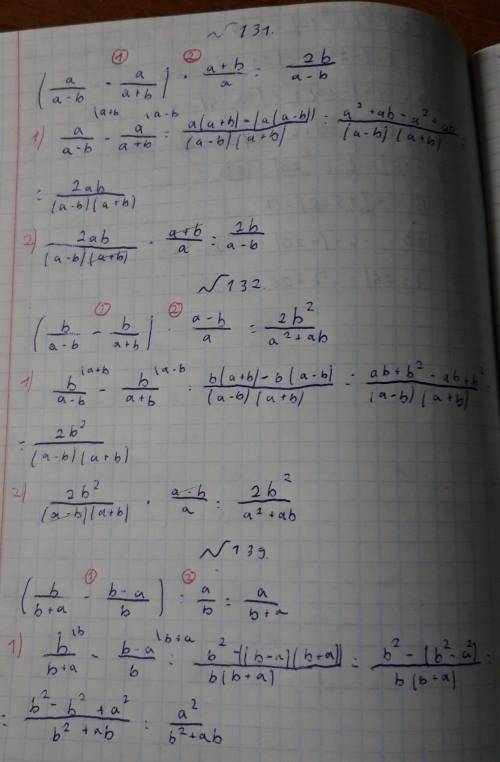 №131.
① ②
(a/(a-b) - a/(a+b)) · (a+b)/a = 2b/(a-b)
1) a/(a-b) |a+b - a/(a+b) |a-b = (a(a+b) - (a(a-b)))/((a-b)(a+b)) = (a²+ab-a²+ab)/((a-b)(a+b)) =
= 2ab/((a-b)(a+b))
2) 2ab/((a-b)(a+b)) · (a+b)/a = 2b/(a-b)
№132.
① ②
(b/(a-b) - b/(a+b)) · (a-b)/a = 2b²/(a²+ab)
1) b/(a-b) |a+b - b/(a+b) |a-b = (b(a+b) - b(a-b))/((a-b)(a+b)) = (ab+b²-ab+b²)/((a-b)(a+b)) =
= 2b²/((a-b)(a+b))
2) 2b²/((a-b)(a+b)) · (a-b)/a = 2b²/(a²+ab)
№139.
① ②
(b/(b+a) - (b-a)/b) : a/b = a/(b+a)
1) b/(b+a) |b - (b-a)/b |b+a = (b² - ((b-a)(b+a)))/(b(b+a)) = (b² - (b²-a²))/(b(b+a)) =
= (b²-b²+a²)/(b²+ab) = a²/(b²+ab)